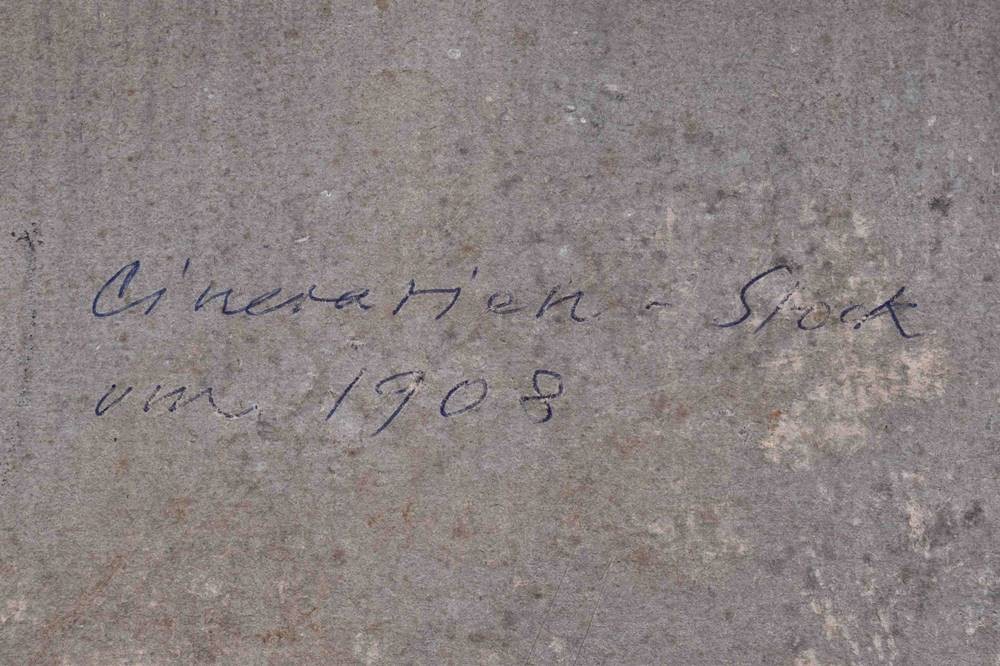 Cinerarien - Stock
um 1908